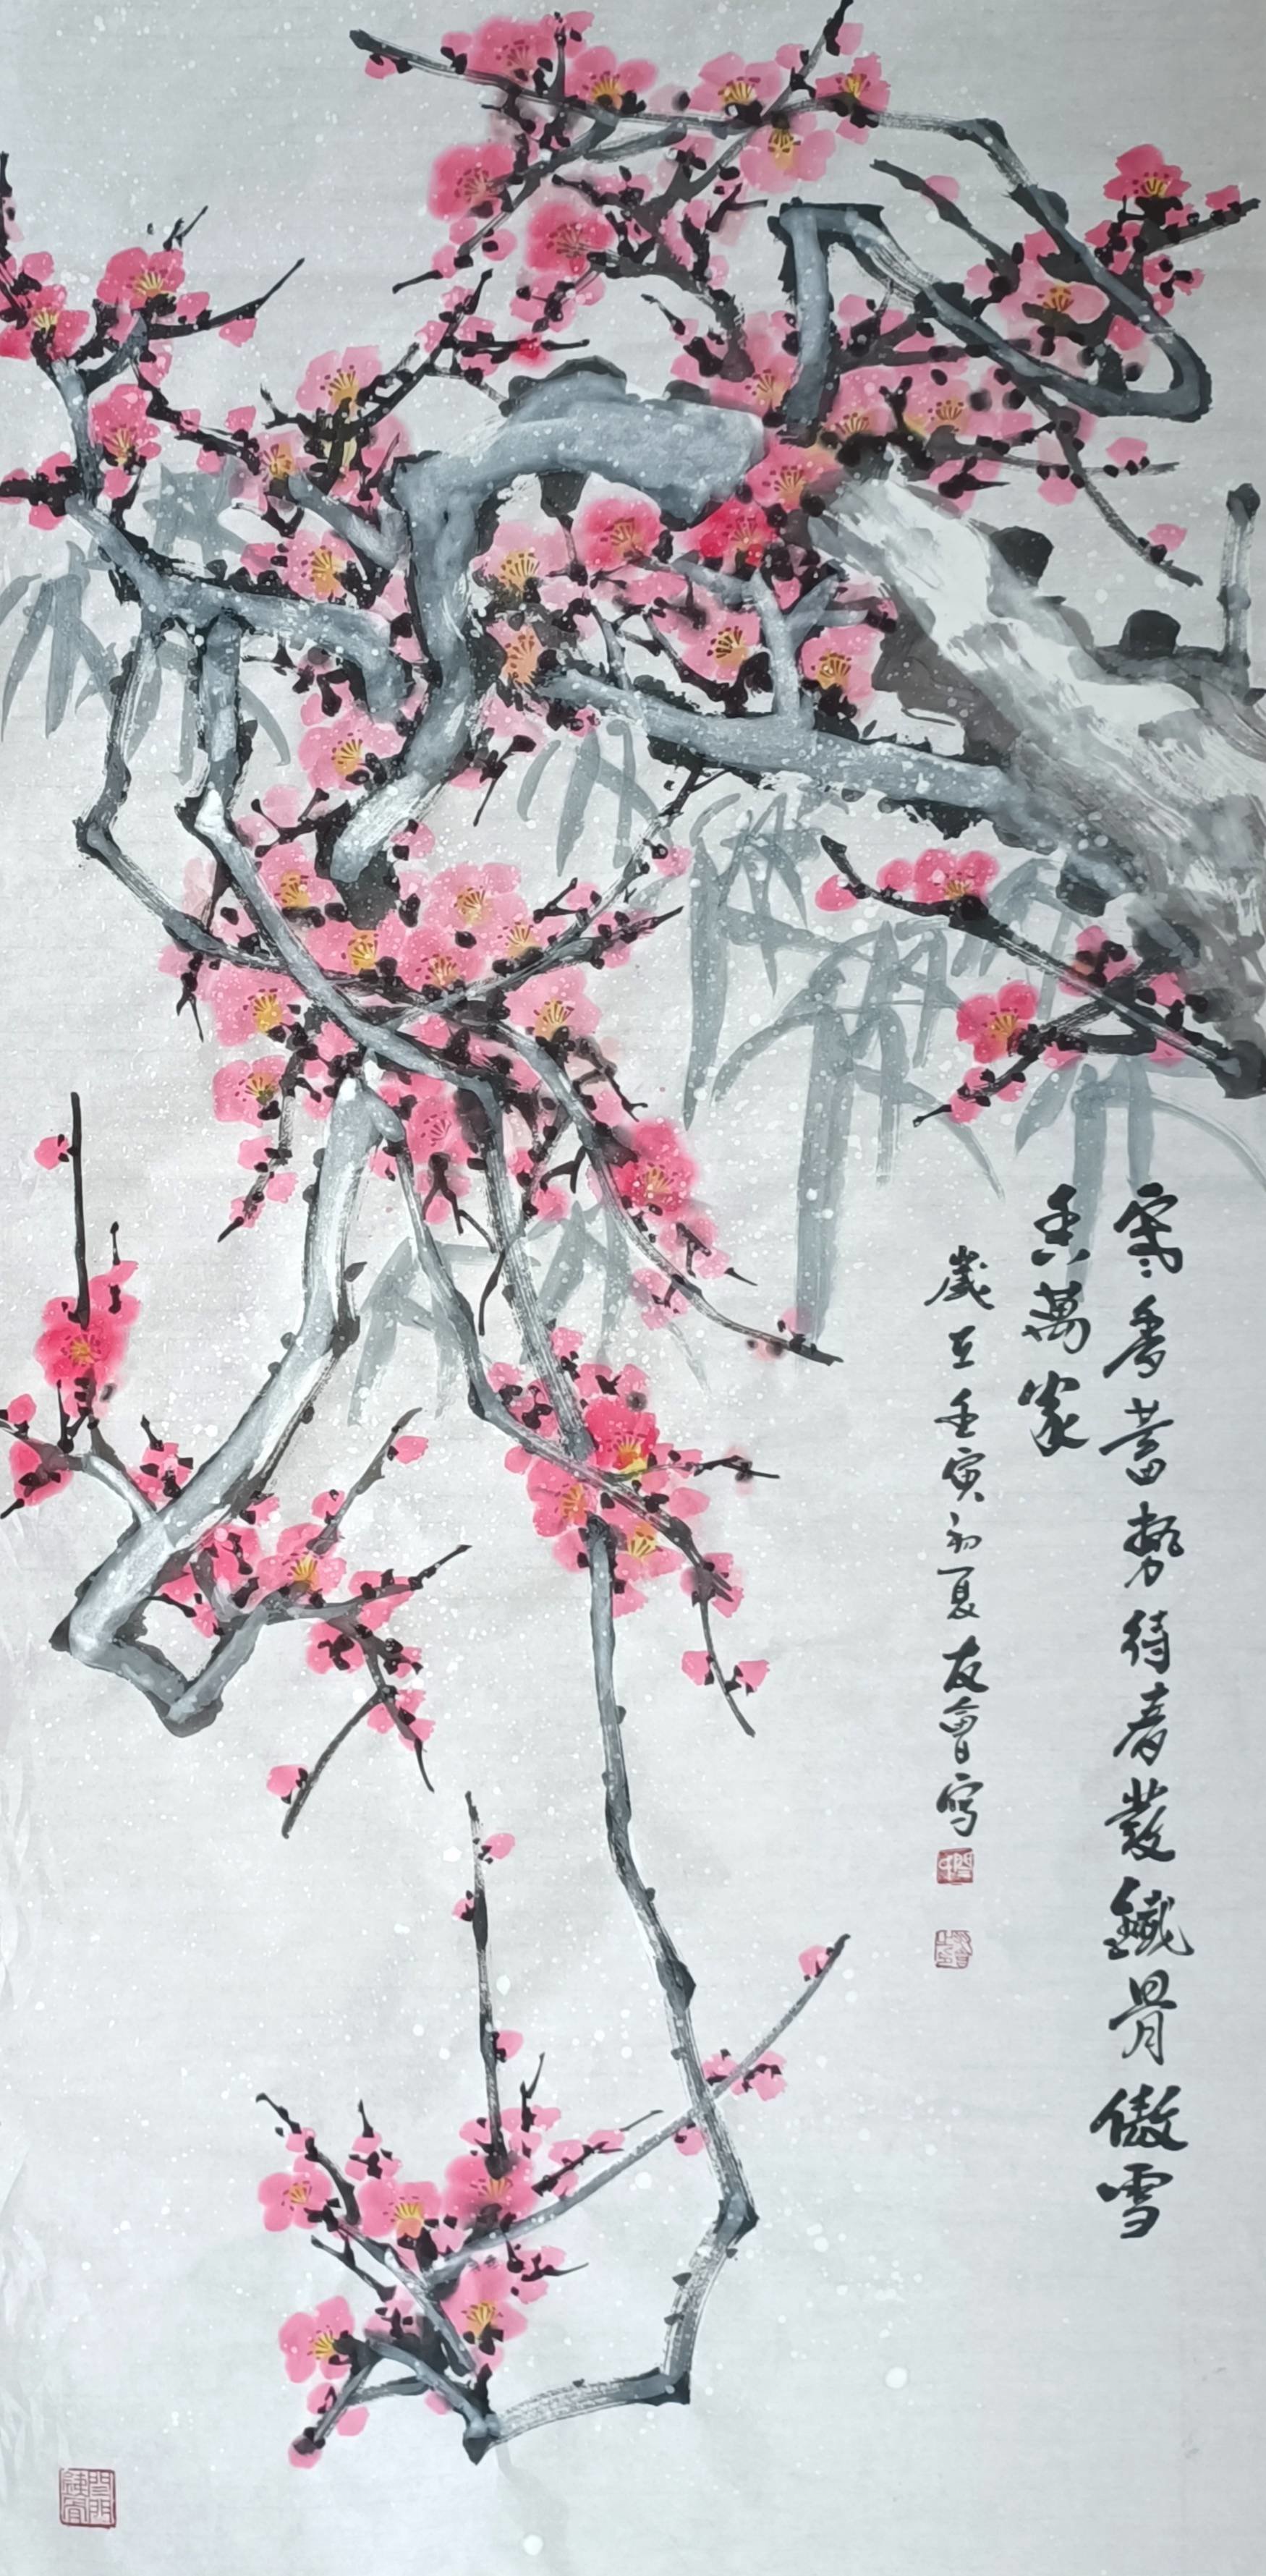 寒香蓄势待春发鐵骨傲雪
香萬家
歲在壬寅初夏友會寫